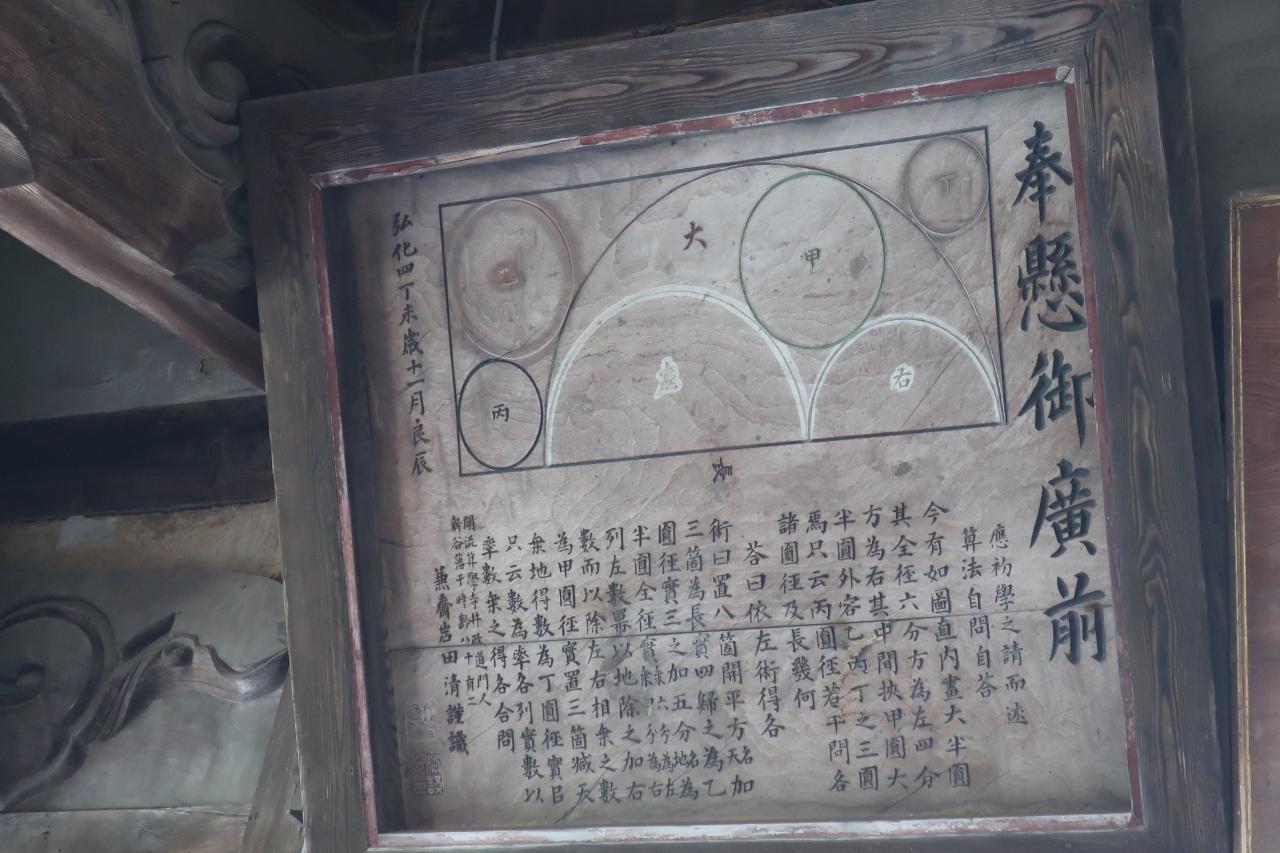 奉懸御廣前
應初學之請而述
算法自問自答
今有如圖直内畫大半圓
其全徑六分方為左四分
方為右其中間挾甲圓大
半圓外容乙丙丁之三圓
焉只云丙圓徑若干問各
諸圓徑及長幾何
答曰依左術得各
術曰置八箇開平方名天加
三箇為長實四歸之為乙
圓徑實三之加五分名地為
半圓全徑實
列左數冪以地除之加右
數而以除左右相乗之數
為甲圓徑實置三箇減天
乗地得數為丁圓徑實以
只云數為率各列實數以
率數乗之得各合問
關流算學寺井政道門人
新谷藩于時齡八十有二
蒹齋岩田清謹識
弘化四丁未歳十一月良辰
大
甲
丁
丙
右
長